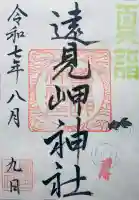 夏詣
遠見岬神社
令和七年八月
九日